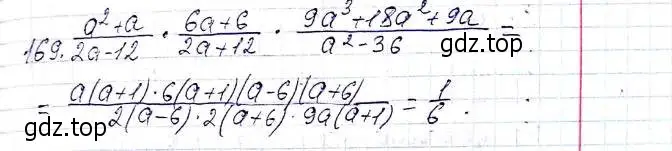 169. \frac{a^2+a}{2a-12} \cdot \frac{6a+6}{2a+12} \cdot \frac{9a^3+18a^2+9a}{a^2-36} =
= \frac{a(a+1) \cdot 6(a+1)(a-6)(a+6)}{2(a-6) \cdot 2(a+6) \cdot 9a(a+1)} = \frac{1}{6}.
гдз.топ
гдз.топ
гдз.топ
гдз.топ